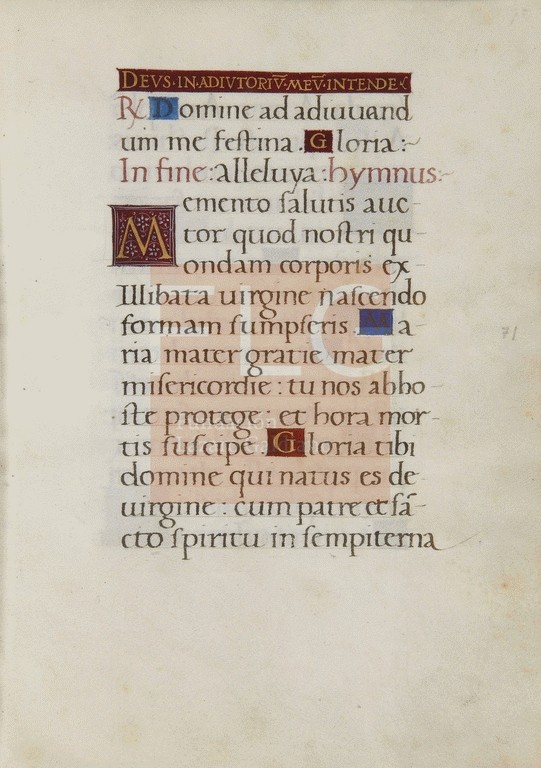 DEVS·IN·ADIVTORIV̄·MEV̄·INTENDE·
R̸ Domine ad adiuuand
um me festina. Gloria:~
In fine: alleluya: hymnus:~
Memento salutis auc-
tor quod nostri qu-
ondam corporis ex-
Illibata uirgine nascendo
formam sumpseris. Ma-
ria mater gratie mater
misericordie: tu nos abho-
ste protege: et hora mor-
tis suscipe. Gloria tibi
domine qui natus es de-
uirgine: cum patre et sā-
cto spiritu in sempiterna
71
FLG
Fundación